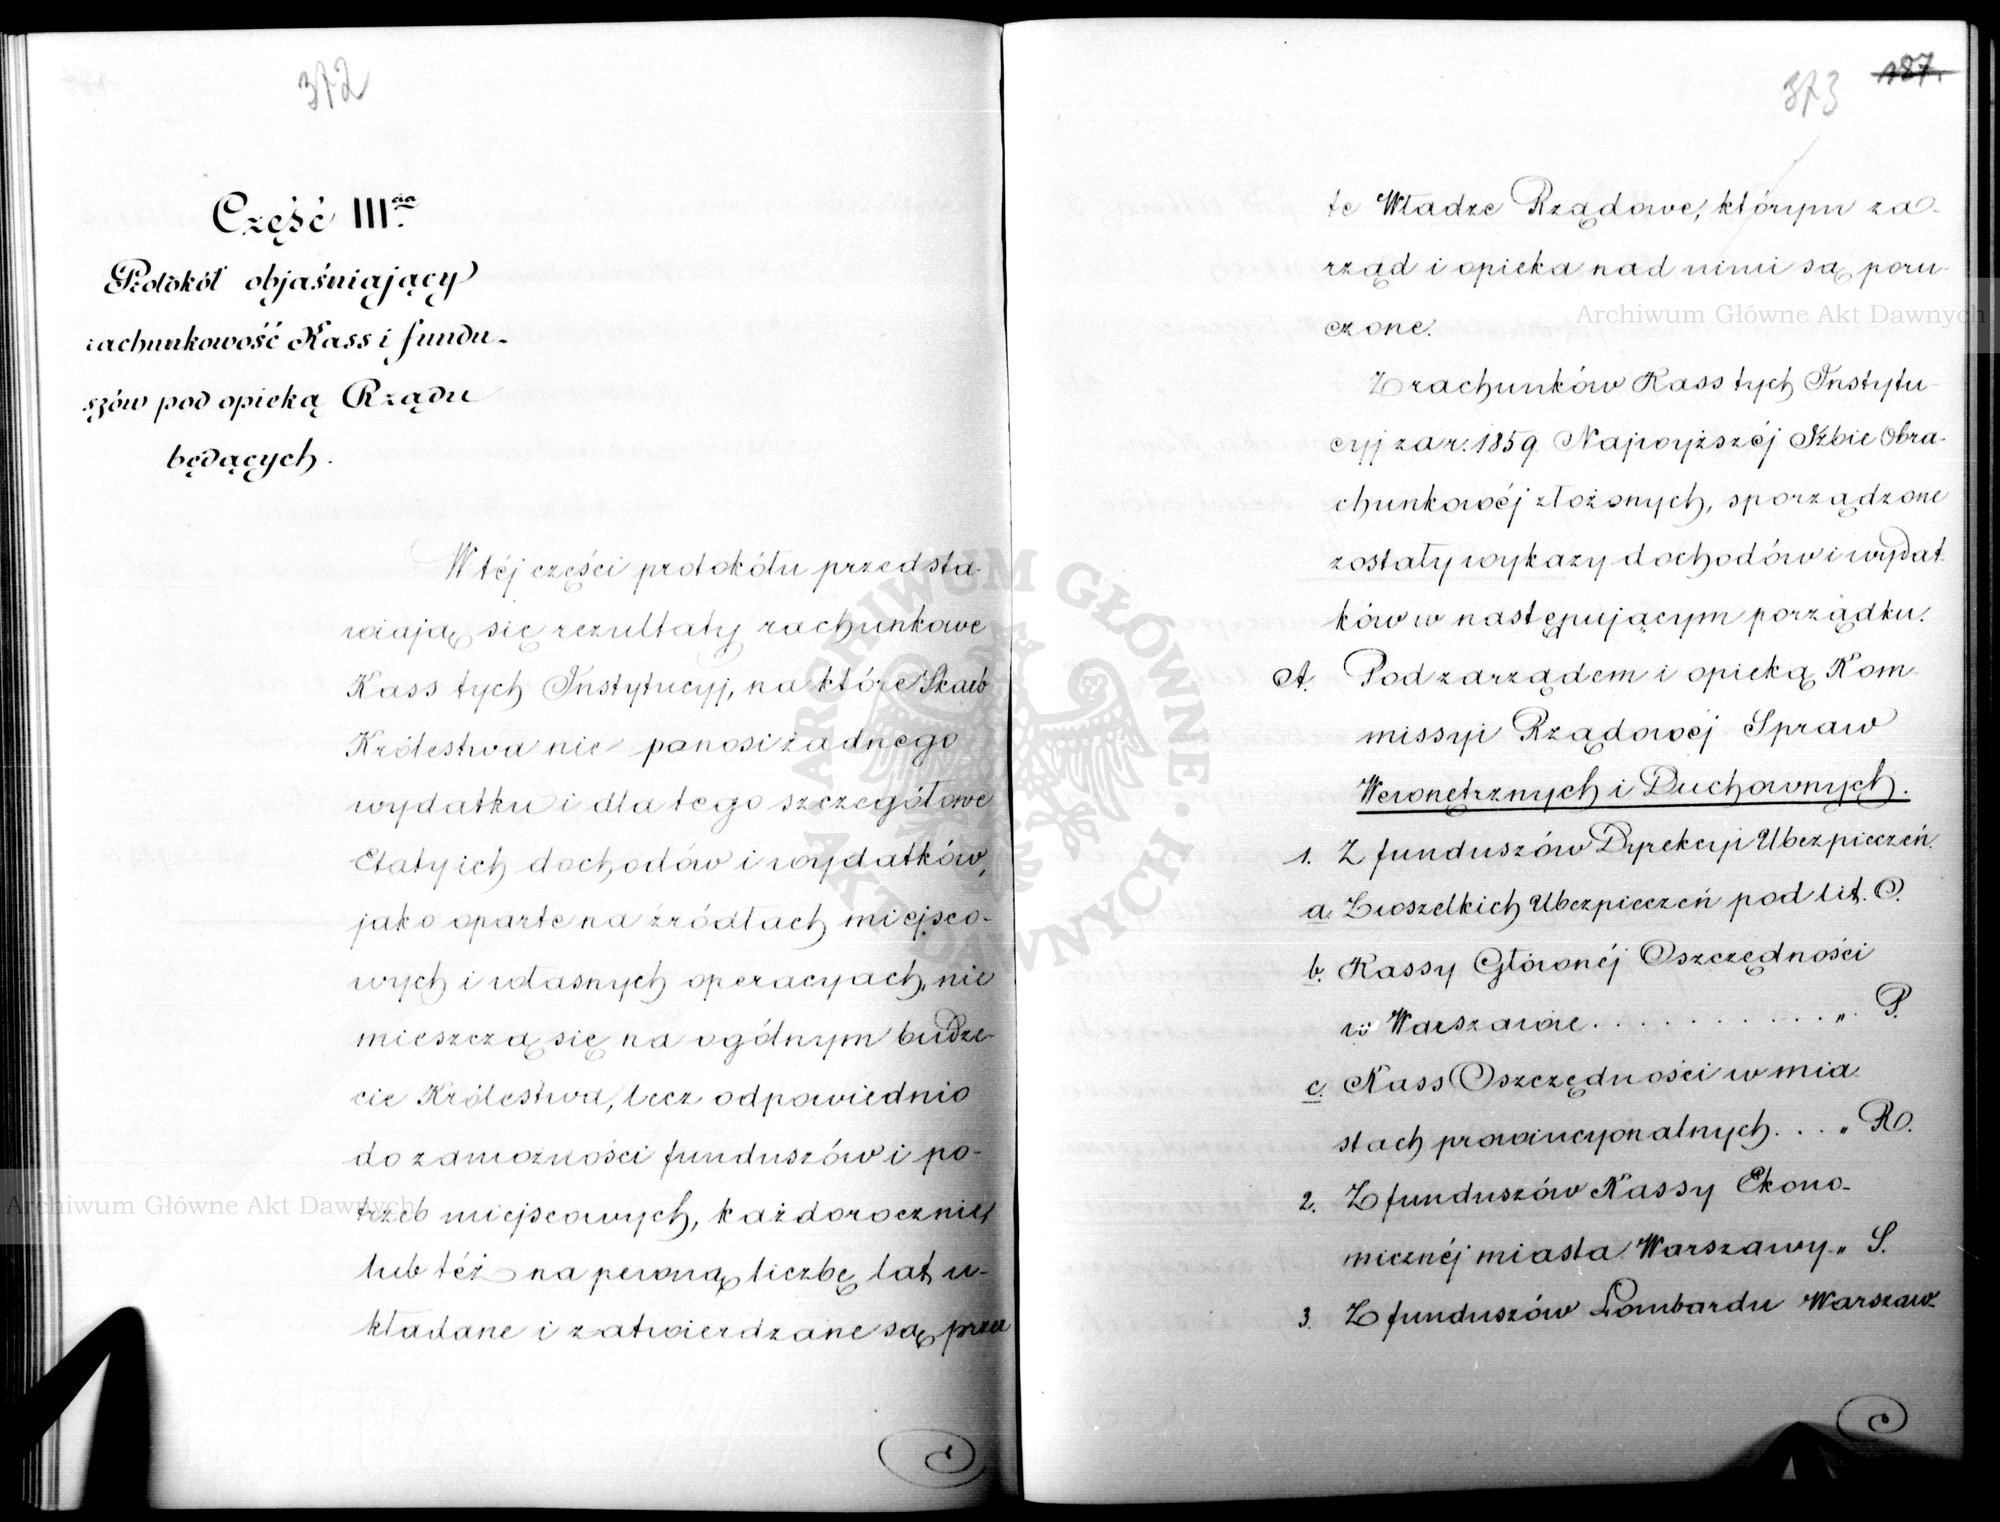 372
Część III cia.
Protokół objaśniający
rachunkowość Kass i fundu-
szów pod opieką Rządu
będących.
W téj części protokółu przedsta-
wiają się rezultaty rachunkowe
Kass tych Instytucyj, na które Skarb
Królestwa nie ponosi żadnego
wydatku i dla tego szczegółowe
Etaty ich dochodów i wydatków,
jako oparte na źródłach miejsco-
wych i własnych operacyach, nie
mieszczą się na ogólnym budże-
cie Królestwa, lecz odpowiednio
do zamożności funduszów i po-
trzeb miejscowych, każdorocznie,
lub téż na pewną liczbę lat u-
kładane i zatwierdzane są przez
373
187.
te Władze Rządowe, którym za-
rząd i opieka nad nimi są poru-
czone.
Z rachunków Kass tych Instytu-
cyj za r. 1859 Najwyższéj Izbie Obra-
chunkowéj złożonych, sporządzone
zostały wykazy dochodów i wydat-
ków w następującym porządku.
A. Pod zarządem i opieką Kom-
missyi Rządowéj Spraw
Wewnętrznych i Duchownych.
1. Z funduszów Dyrekcyi Ubezpieczeń.
a. Wszelkich Ubezpieczeń pod lit. O.
b. Kassy Głównéj Oszczędności
w Warszawie . . . . . . . . . . . " P.
c. Kass Oszczędności w mia-
stach prowincyonalnych . . . " R.
2. Z funduszów Kassy Ekono-
micznéj miasta Warszawy " S.
3. Z funduszów Lombardu Warszaw-
Archiwum Główne Akt Dawnych
Archiwum Główne Akt Dawnych
ARCHIWUM GŁÓWNE AKT DAWNYCH